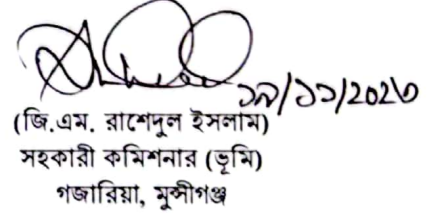 ১৯/১১/২০২৩
(জি.এম. রাশেদুল ইসলাম)
সহকারী কমিশনার (ভূমি)
গজারিয়া, মুন্সীগঞ্জ